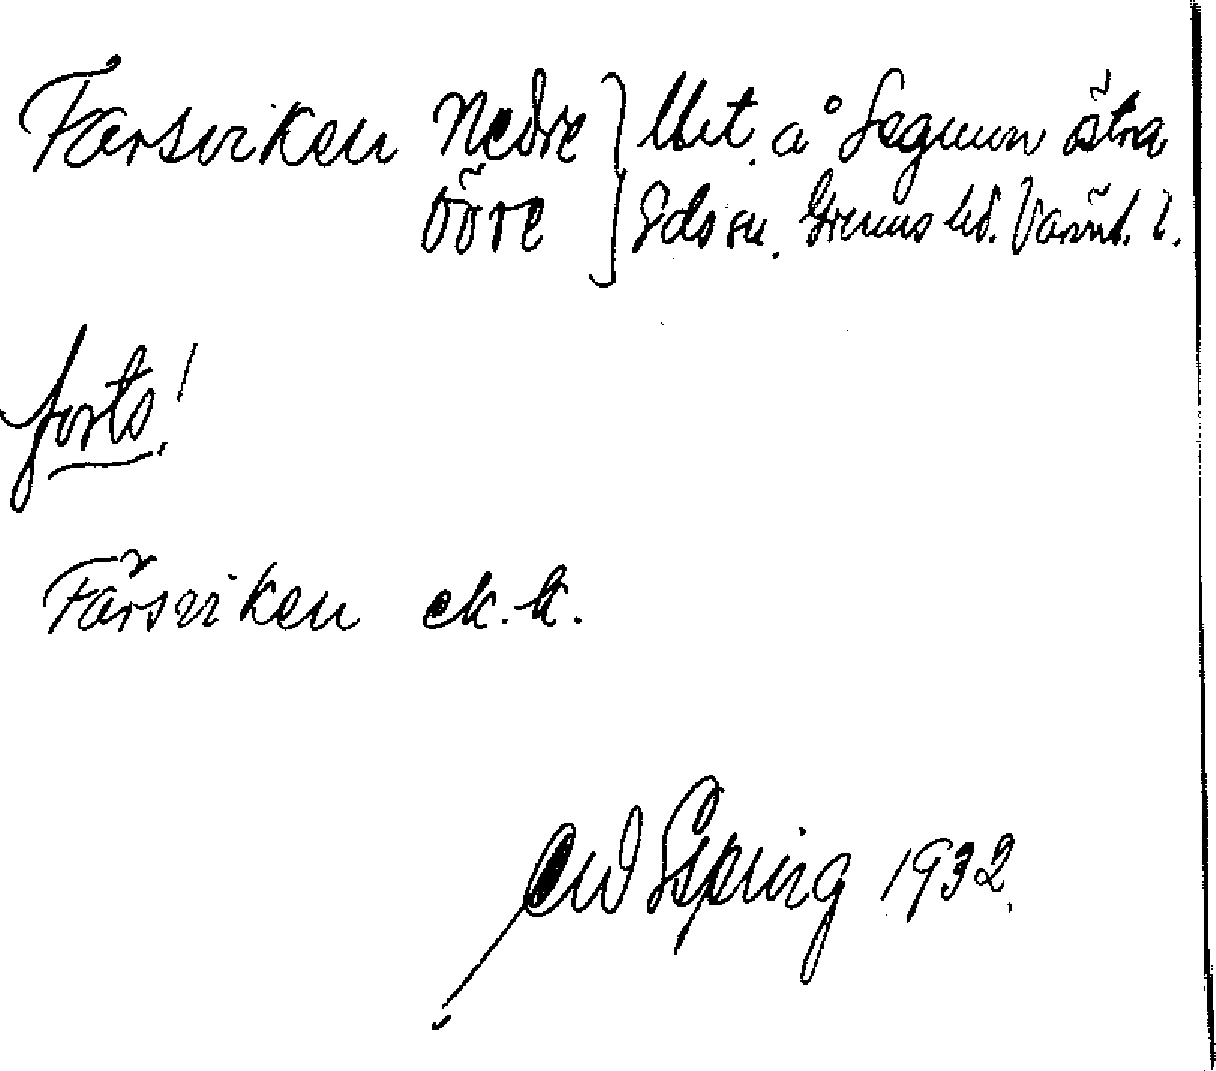 Färsviken Nedre } Utet. å Segmon östra
Övre } Eds sn. Grums hd. Värml. l.
forts!
Färsviken ek. k.
Spring 1932.